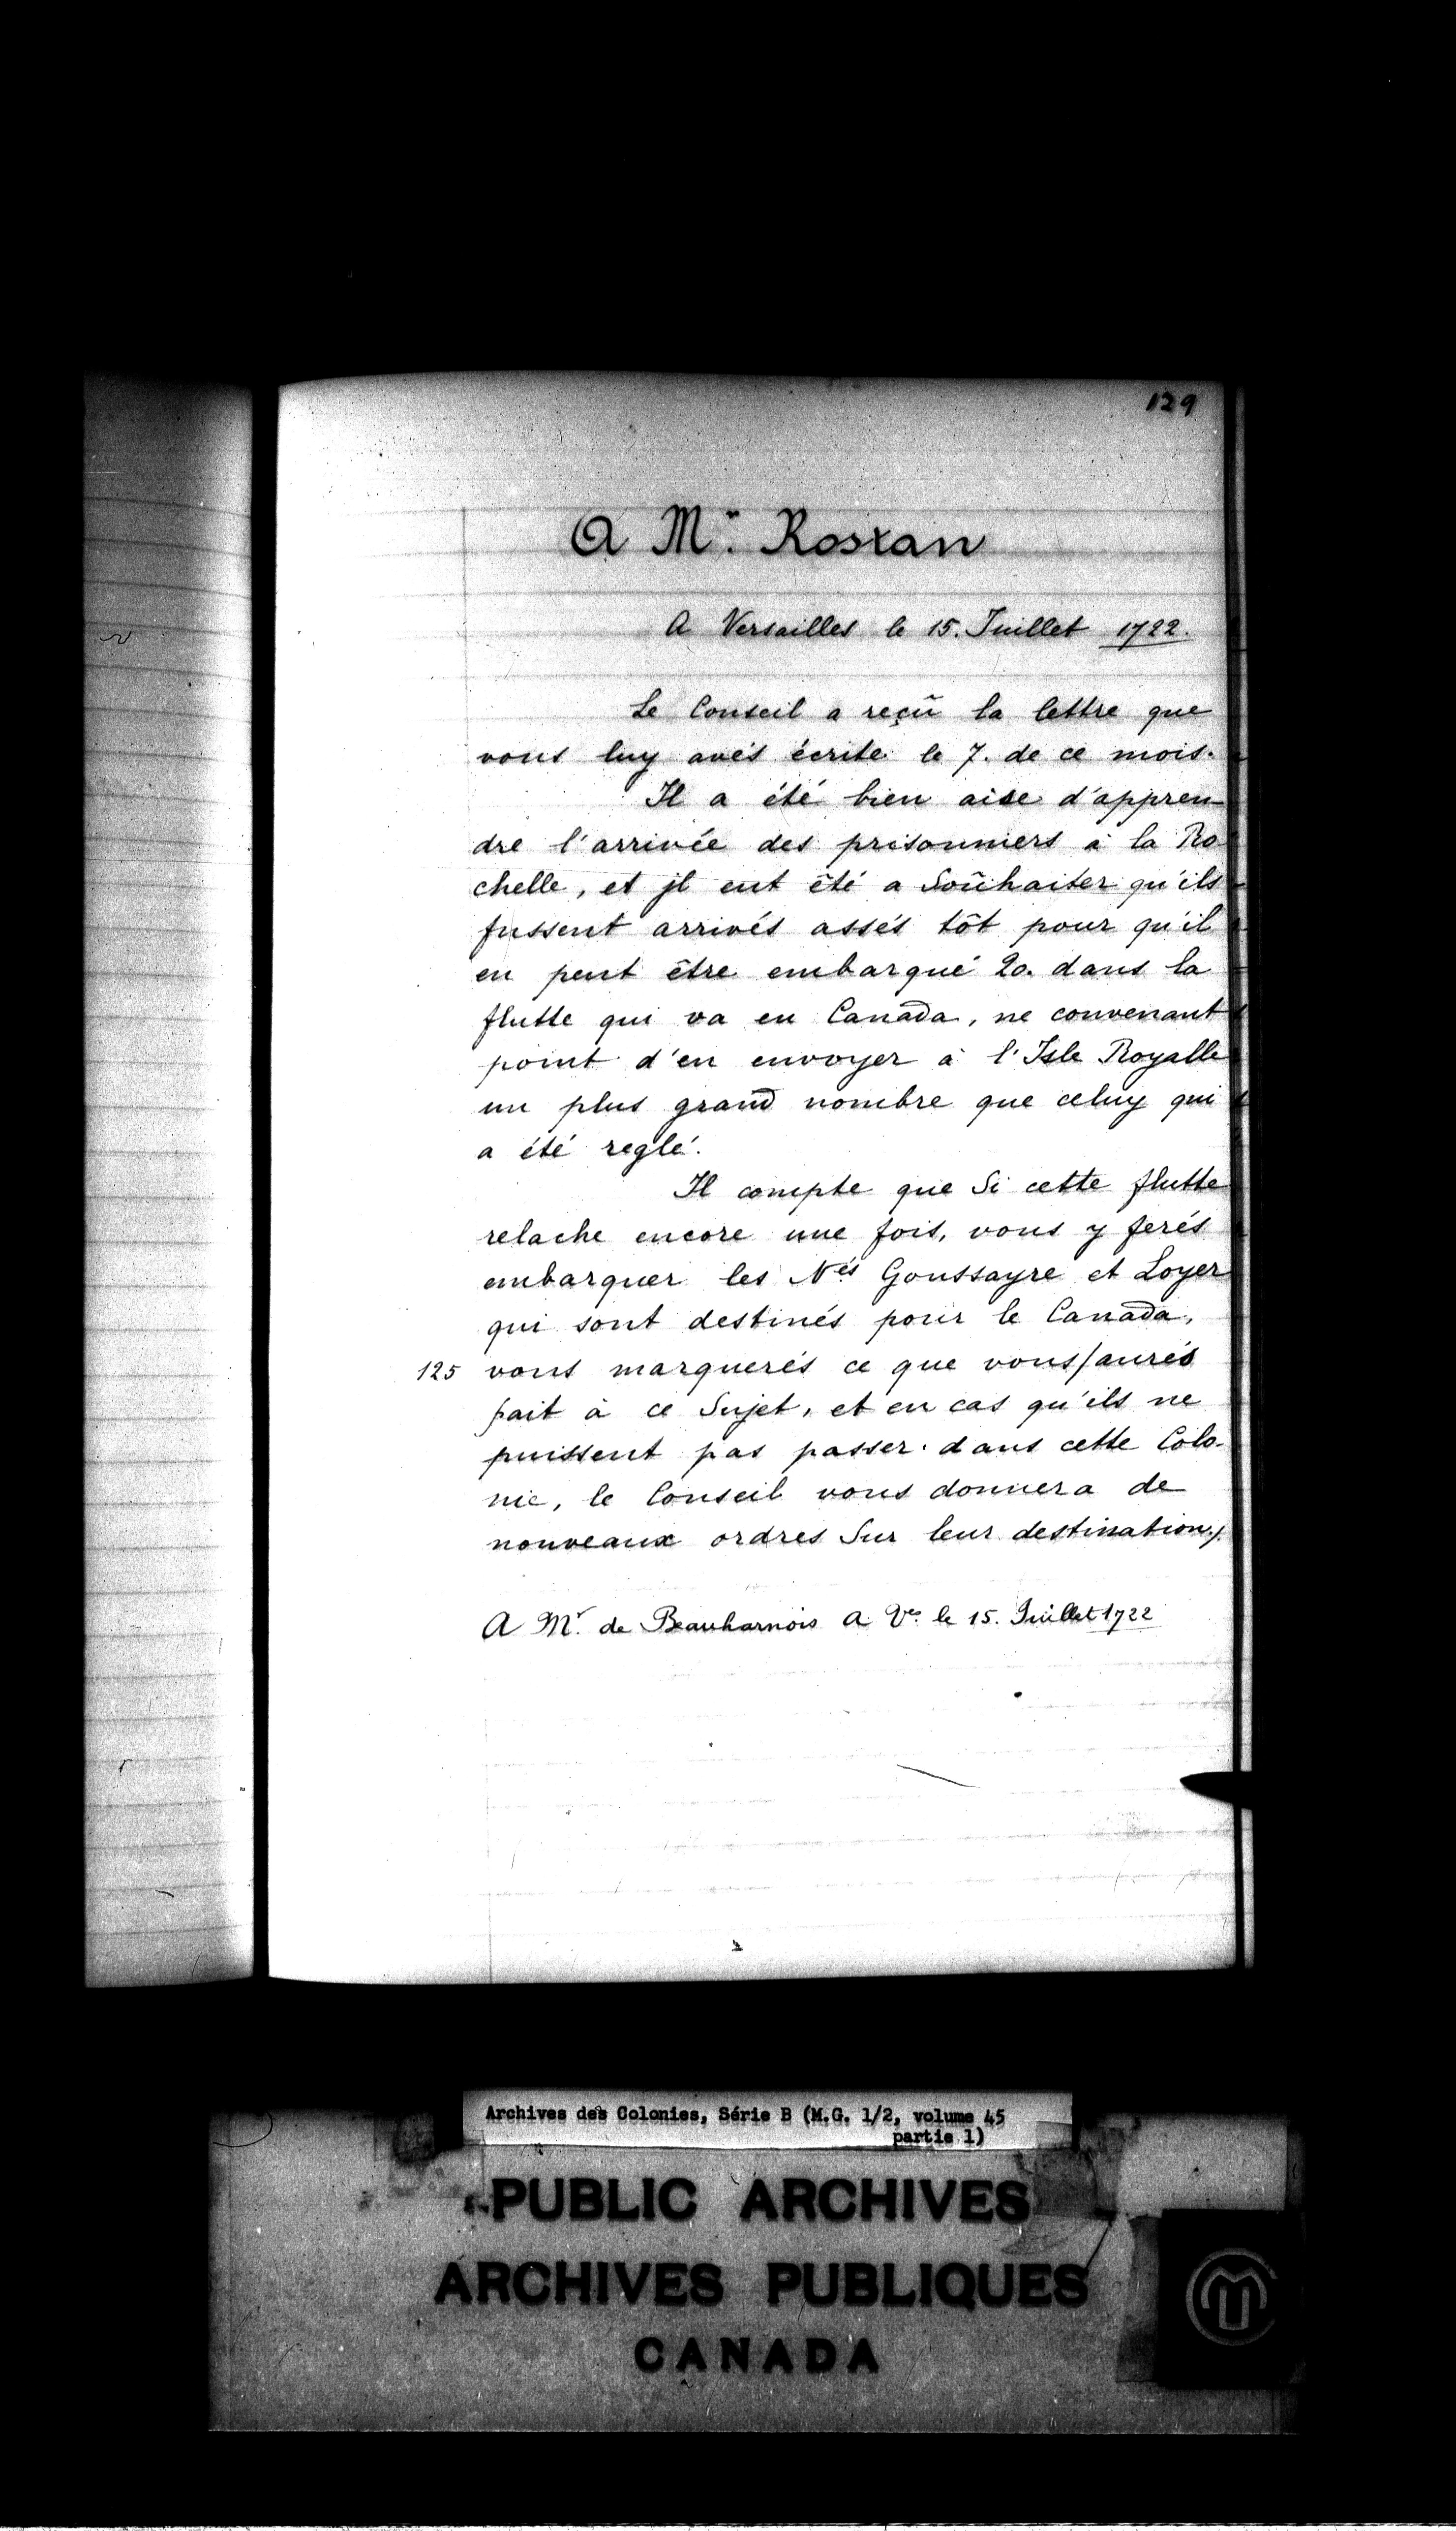 129
A Mr. Rostan
A Versailles le 15. Juillet 1722.
Le Conseil a reçû la lettre que
vous luy avés écrite le 7. de ce mois.
Il a été bien aise d'appren-
dre l'arrivée des prisonniers à la Ro
chelle, et jl eut été a Soûhaiter qu'ils
fussent arrivés assés tôt pour qu'il
en peut être embarqué 20. dans la
flutte qui va en Canada, ne convenant
point d'en envoyer à l'Isle Royalle
un plus grand nombre que celuy qui
a été reglé.
Il compte que Si cette flutte
relache encore une fois, vous y ferés
embarquer les Nés Goussayre et Loyer
qui sont destinés pour le Canada,
125 vous marquerés ce que vous/aurés
fait à ce Sujet, et en cas qu'ils ne
puissent pas passer dans cette Colo-
nie, le Conseil vous donnera de
nouveaux ordres Sur leur destination./.
A Mr. de Beauharnois A Ves. le 15. Juillet 1722
Archives des Colonies, Série B (M.G. 1/2, volume 45
partie 1)
PUBLIC ARCHIVES
ARCHIVES PUBLIQUES
CANADA